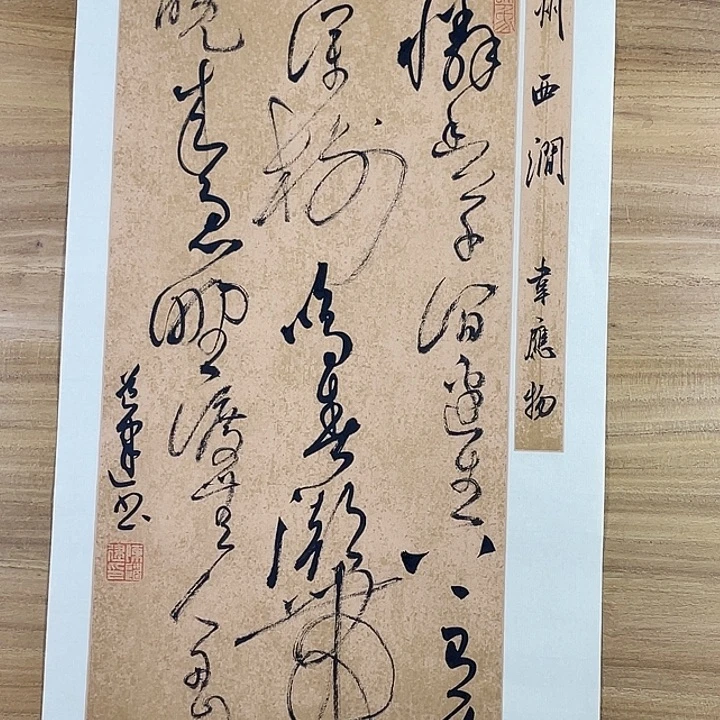 州西澗 韋應物
憐幽草澗邊生上有
深樹鳴春潮帶
晚來急野渡無人舟
書